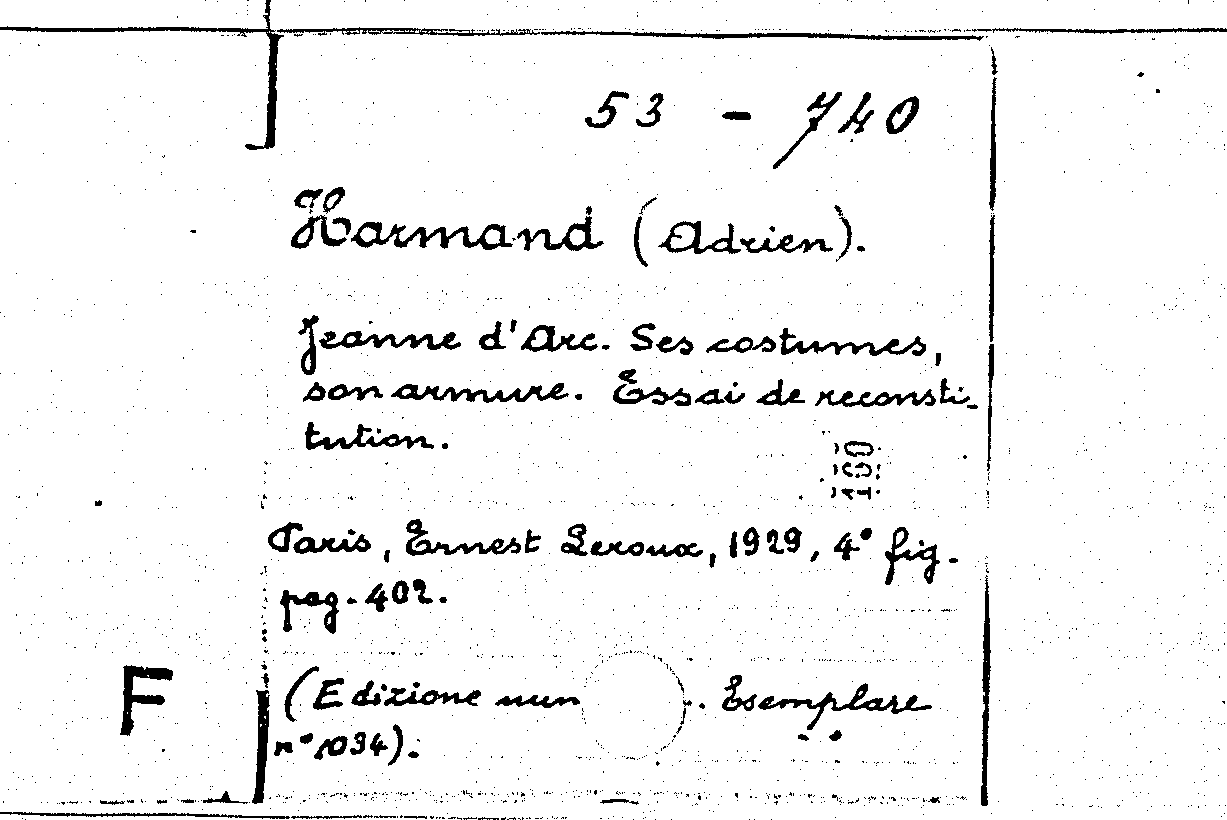 53 - 740
Harmand (Adrien).
Jeanne d'Arc. Ses costumes,
son armure. Essai de reconsti-
tution.
160
Paris, Ernest Leroux, 1929, 4° fig.
pag. 402.
F
(Edizione num . Esemplare
n° 1034).